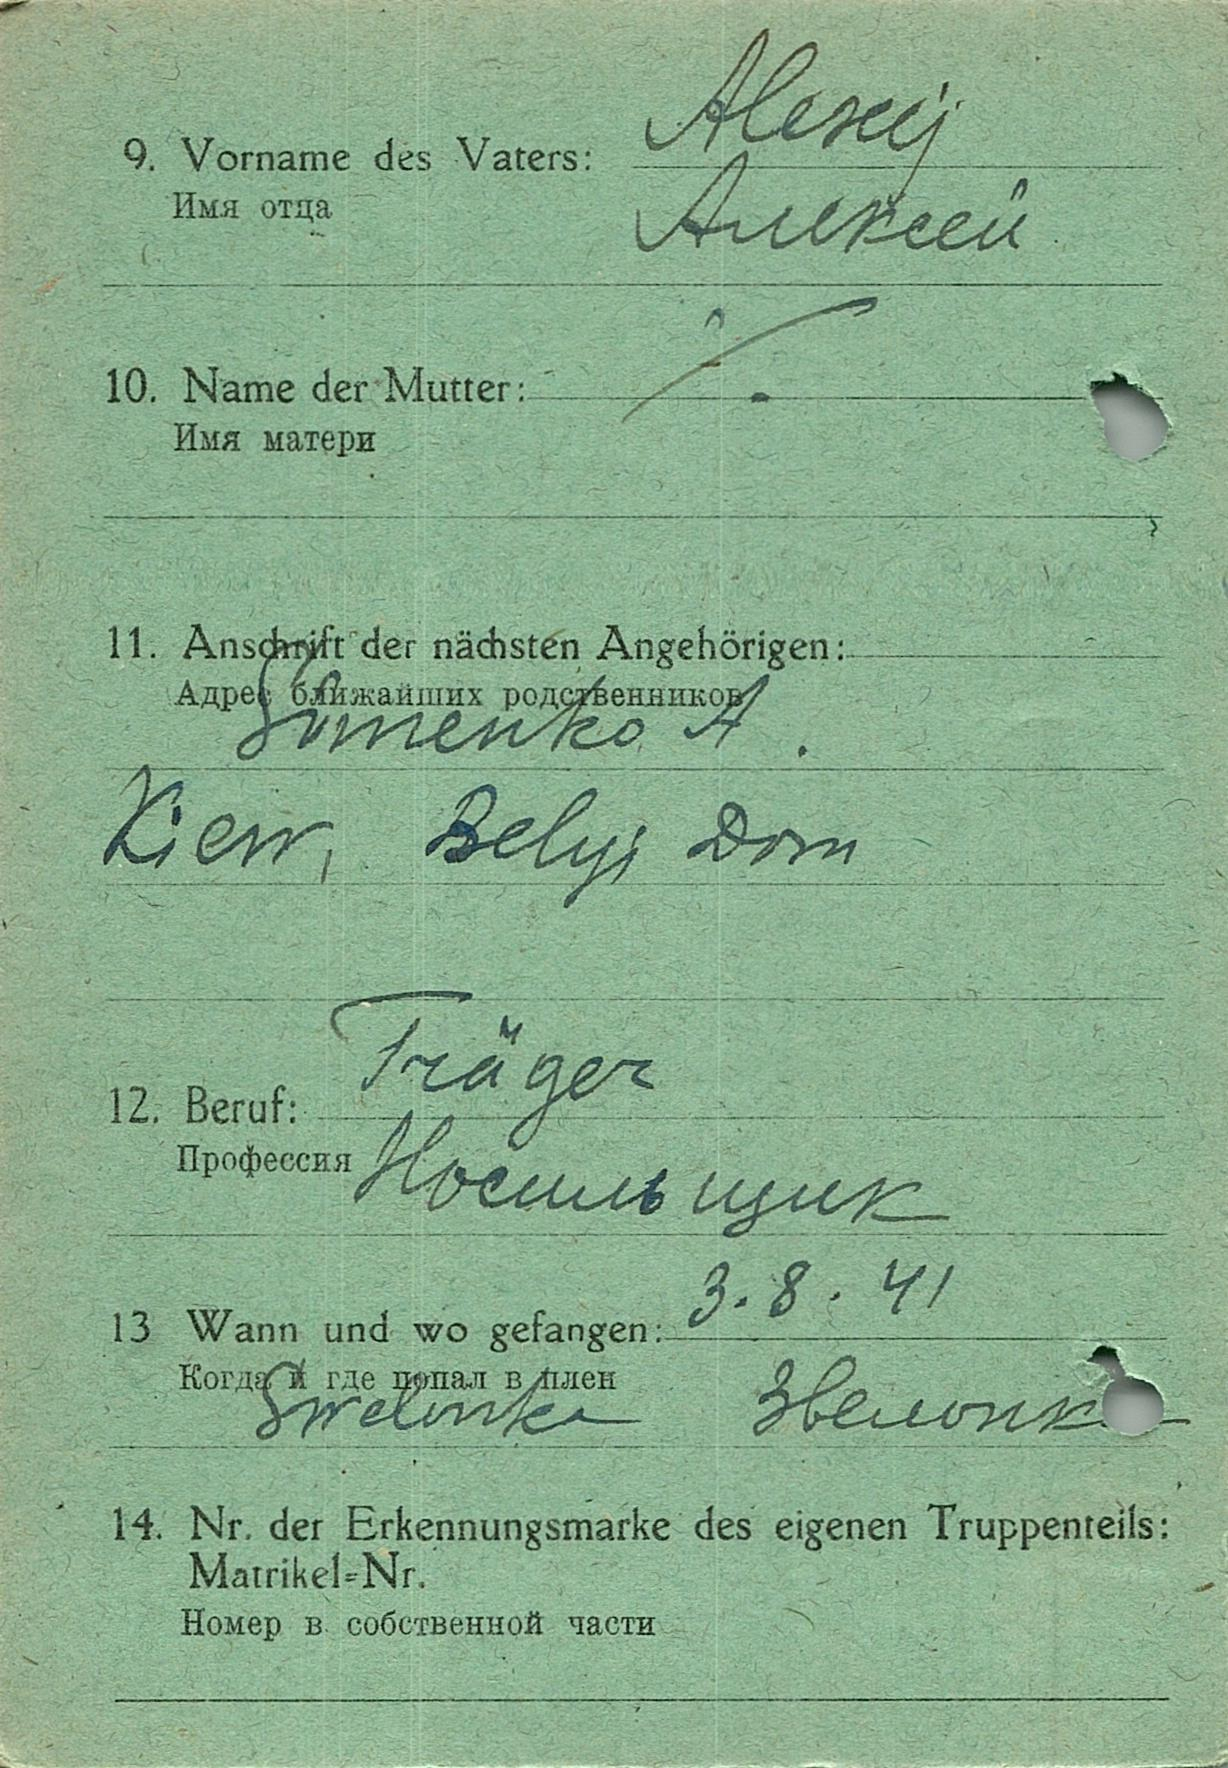 9. Vorname des Vaters: Alexej
Имя отца Алексей
10. Name der Mutter: -.
Имя матери
11. Anschrift der nächsten Angehörigen:
Адрес ближайших родственников
Simenko A.
Kiew, Belyj Dom
12. Beruf: Träger
Профессия Носильщик
13 Wann und wo gefangen: 3.8.41
Когда и где попал в плен
Swelonka Звелонка
14. Nr. der Erkennungsmarke des eigenen Truppenteils:
Matrikel-Nr.
Номер в собственной части